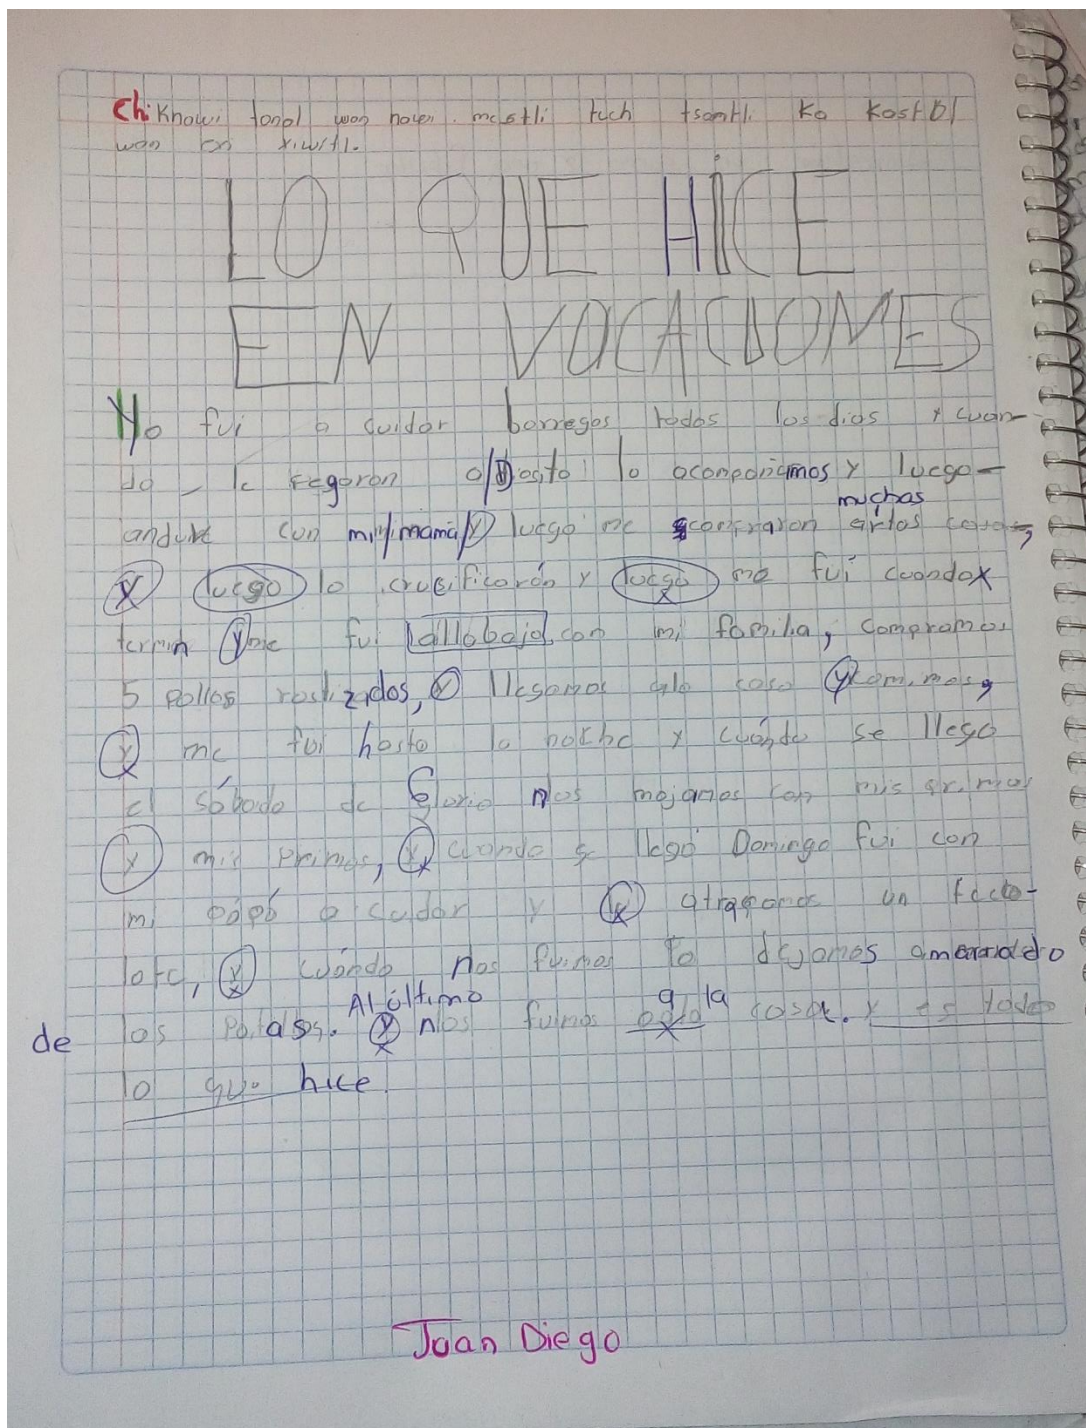 Chikhowi tonol won hoven mestli tuch tsontli Ko Kostol
won on xiwitl.
LO QUE HICE
EN VOCACIOMES
Yo fui a cuidar borregos todos los dios y cuan-
do le pegaron a Diosito lo acompoñamos y luego
anduve con mi mamá y luego me compraron muchas cosas,
y luego lo crusificarón y luego me fui cuondo
termin y me fui allobajo con mi fomilia, compromos
5 pollos rostizados, y llegomos alo coso y comimos,
y me fui hosto lo noche y cuóndo se llego
el sóbodo de Glorio nos mojamos con mis primos
y mis primos, y cuondo se llegó Domingo fui con
mi pópó a cuidor y y atrapomos un tecto-
lote, y cuóndo nos fuimos lo dejomos amarrado
de los patas. Al último y nos fuimos a la casa. y es todo
lo que hice.
Juan Diego